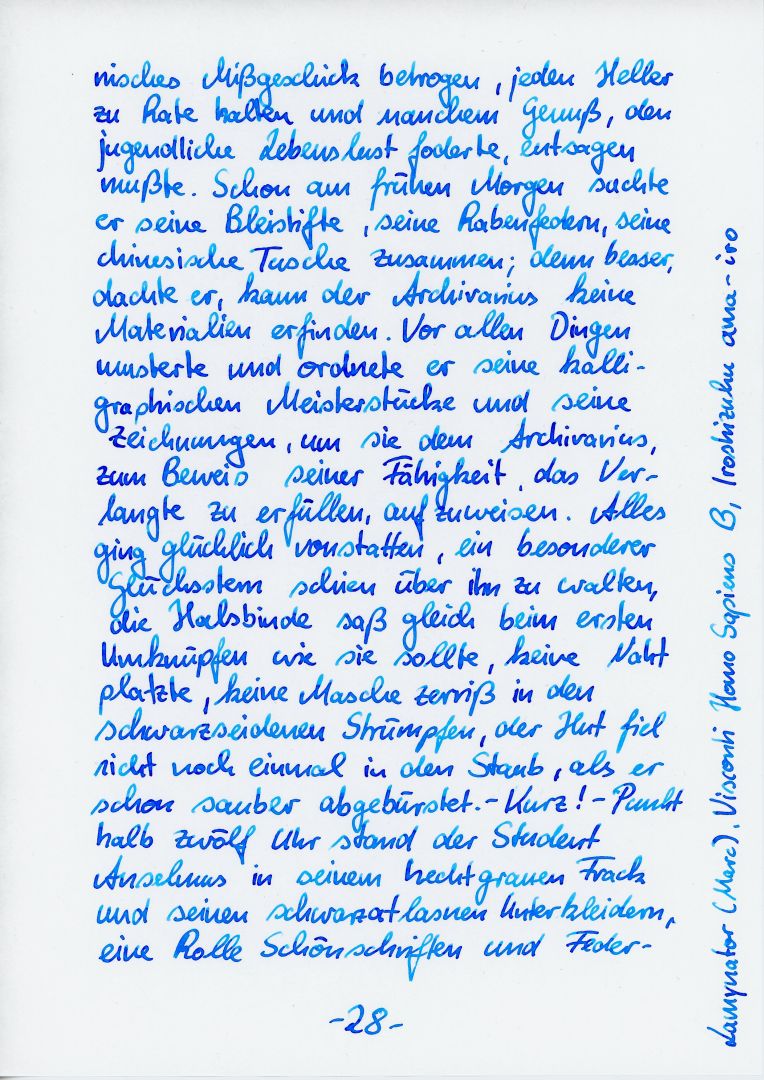 nisches Mißgeschick betrogen, jeden Heller
zu Rate halten und manchem Genuß, den
jugendliche Lebenslust foderte, entsagen
mußte. Schon am frühen Morgen suchte
er seine Bleistifte, seine Rabenfedern, seine
chinesische Tusche zusammen; denn besser,
dachte er, kann der Archivarius keine
Materialien erfinden. Vor allen Dingen
musterte und ordnete er seine kalli-
graphischen Meisterstücke und seine
Zeichnungen, um sie dem Archivarius,
zum Beweis seiner Fähigkeit, das Ver-
langte zu erfüllen, aufzuweisen. Alles
ging glücklich vonstatten, ein besonderer
Glücksstern schien über ihm zu walten,
die Halsbinde saß gleich beim ersten
Umknüpfen wie sie sollte, keine Naht
platzte, keine Masche zerriß in den
schwarzseidenen Strümpfen, der Hut fiel
nicht noch einmal in den Staub, als er
schon sauber abgebürstet. - Kurz! - Punkt
halb zwölf Uhr stand der Student
Anselmus in seinem hechtgrauen Frack
und seinen schwarzatlasnen Unterkleidern,
eine Rolle Schönschriften und Feder-
-28-
Lamynator (Marc), Visconti Homo Sapiens B, Iroshizuku ama-iro